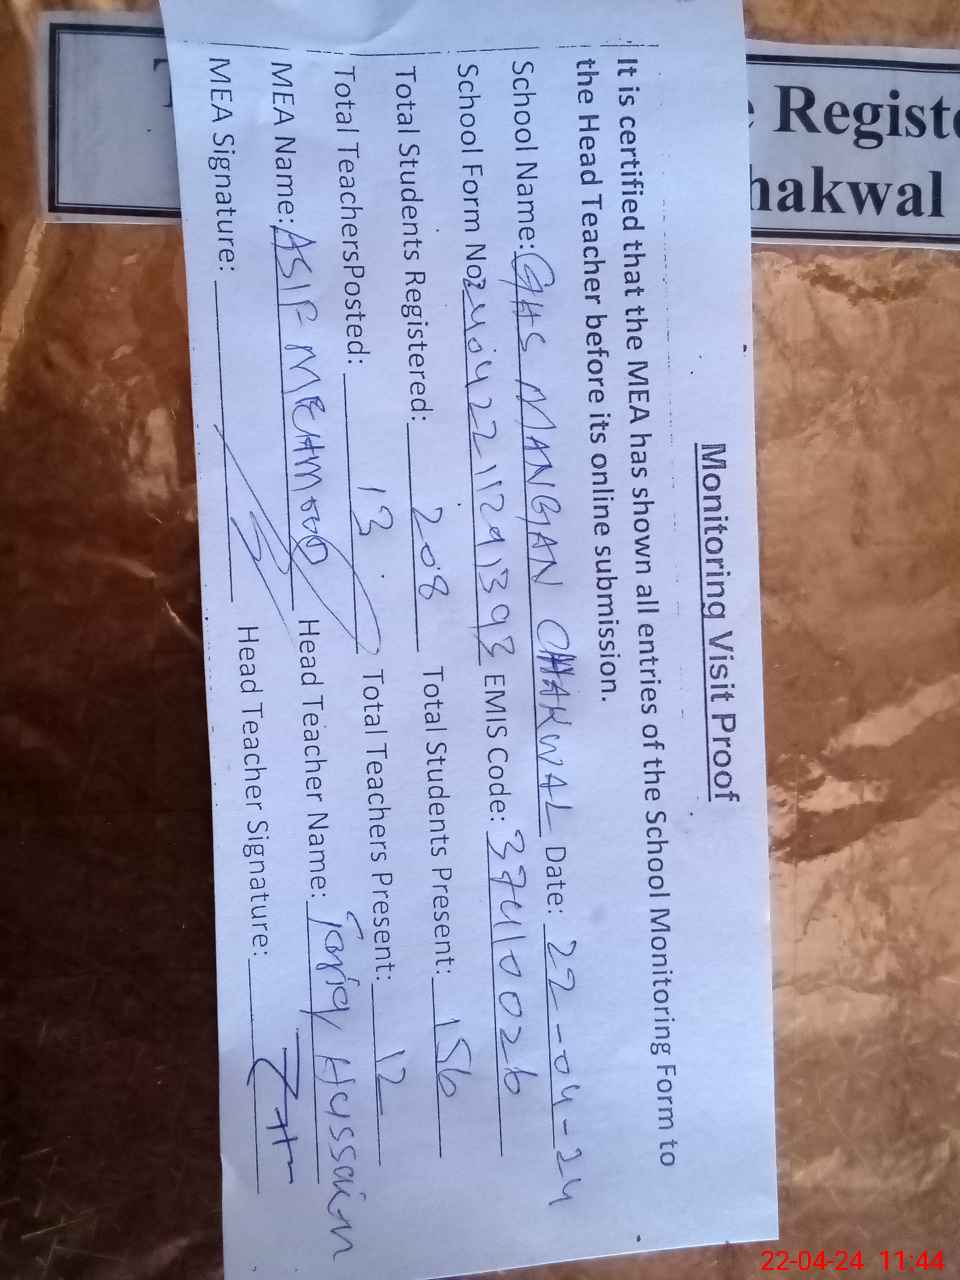 Monitoring Visit Proof
It is certified that the MEA has shown all entries of the School Monitoring Form to
the Head Teacher before its online submission.
School Name: GHS MANGAN CHAKWAL Date: 22-04-24
School Form No: 24042211291393 EMIS Code: 37410026
Total Students Registered: 208 Total Students Present: 156
Total TeachersPosted: 13 Total Teachers Present: 12
MEA Name: ASIF MEHMOOD Head Teacher Name: Tariq Hussain
MEA Signature: Head Teacher Signature:
Registe
hakwal
22-04-24 11:44